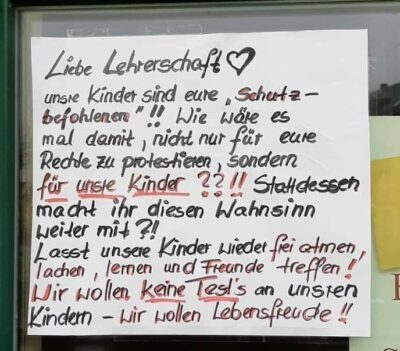 Liebe Lehrerschaft ♡
unsre Kinder sind eure „Schutz-
befohlenen"!! Wie wäre es
mal damit, nicht nur für eure
Rechte zu protestieren, sondern
für unsre Kinder ??!! Stattdessen
macht ihr diesen Wahnsinn
weiter mit?!
Lasst unsere Kinder wieder frei atmen,
lachen, lernen und Freunde treffen!
Wir wollen keine Test's an unsren
Kindern - wir wollen Lebensfreude!!